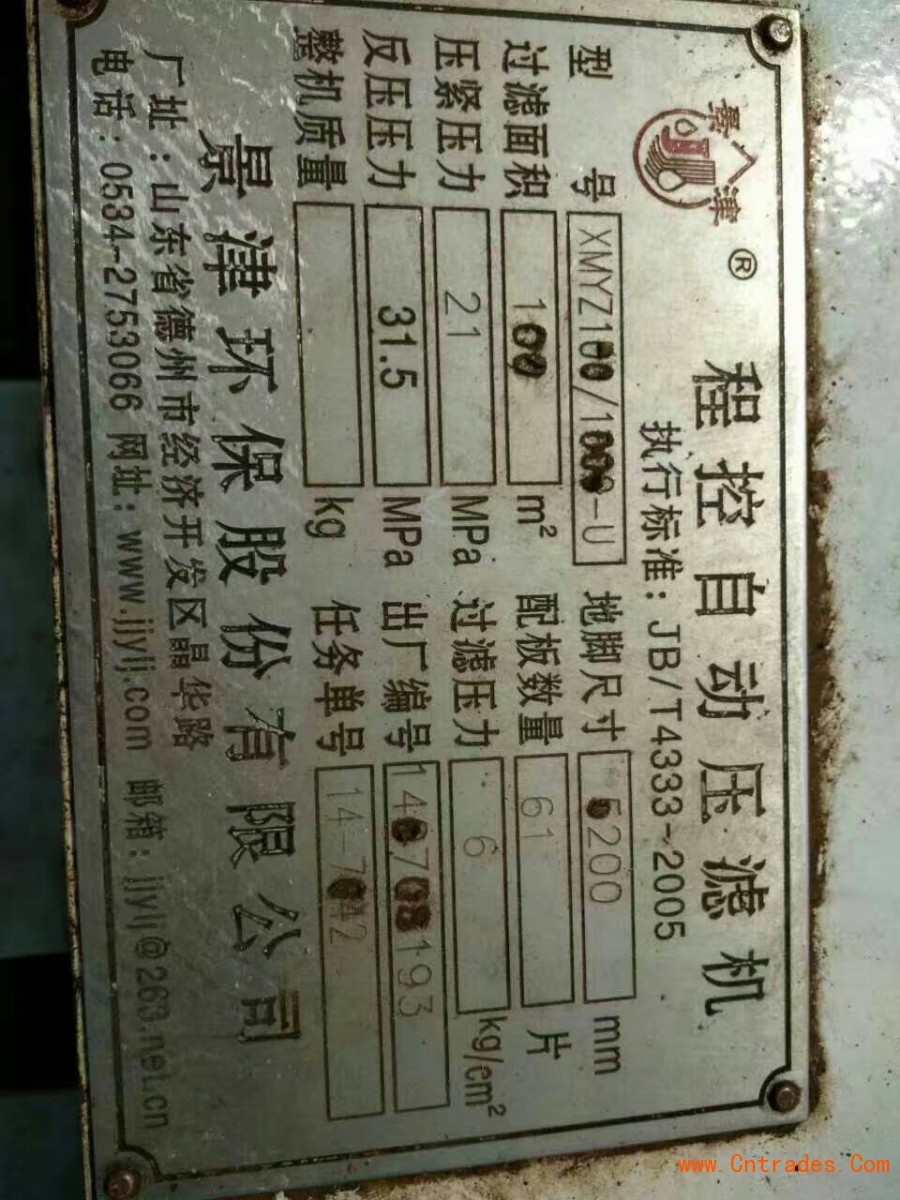 景津®
程控自动压滤机
执行标准：JB/T4333-2005
型号 XMYZ100/1000-U 地脚尺寸 5200 mm
过滤面积 100 m² 配板数量 61 片
压紧压力 21 MPa 过滤压力 6 kg/cm²
反压压力 31.5 MPa 出厂编号
整机质量 kg 任务单号
景津环保股份有限公司
厂址：山东省德州市经济开发区晶华路
电话：0534-2753066 网址：www.jjylj.com 邮箱：jjylj@263.net.cn
www.Cntrades.Com